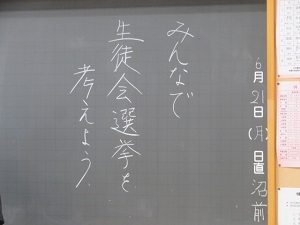 6月21日(月)日直 沼前
みんなで
生徒会選挙を
考えよう。